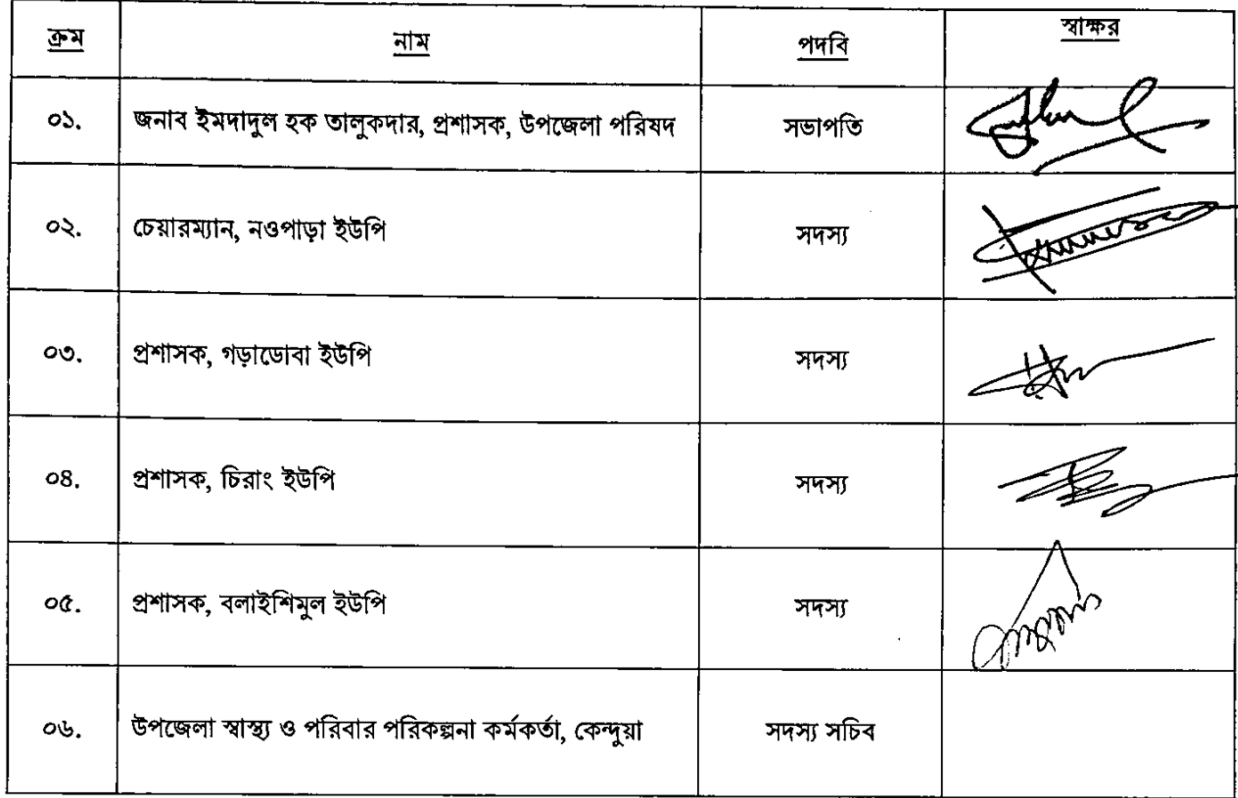 ক্রম নাম পদবি স্বাক্ষর
০১. জনাব ইমদাদুল হক তালুকদার, প্রশাসক, উপজেলা পরিষদ সভাপতি
০২. চেয়ারম্যান, নওপাড়া ইউপি সদস্য
০৩. প্রশাসক, গড়াডোবা ইউপি সদস্য
০৪. প্রশাসক, চিরাং ইউপি সদস্য
০৫. প্রশাসক, বলাইশিমুল ইউপি সদস্য
০৬. উপজেলা স্বাস্থ্য ও পরিবার পরিকল্পনা কর্মকর্তা, কেন্দুয়া সদস্য সচিব